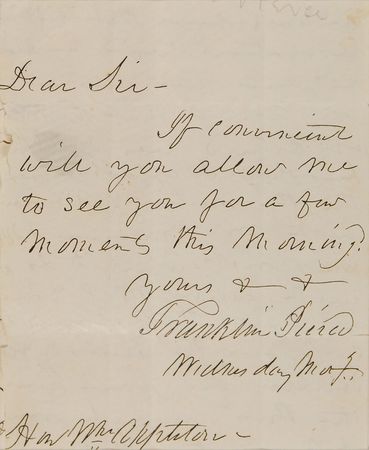 Pierce
Dear Sir –
If convenient
will you allow me
to see you for a few
moments this morning?
yours & &
Franklin Pierce
Wednesday Morg.
Hon Wm Appleton –